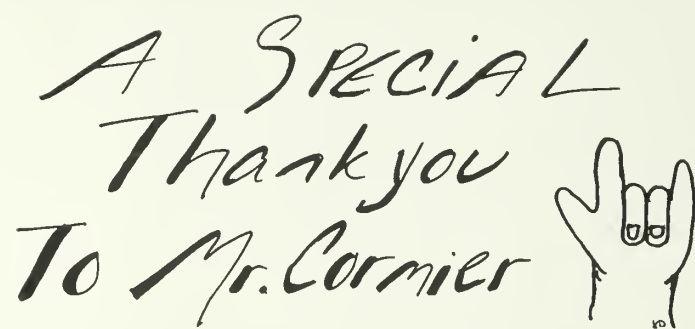 A SPECiAL
Thank you
To Mr. Cormier